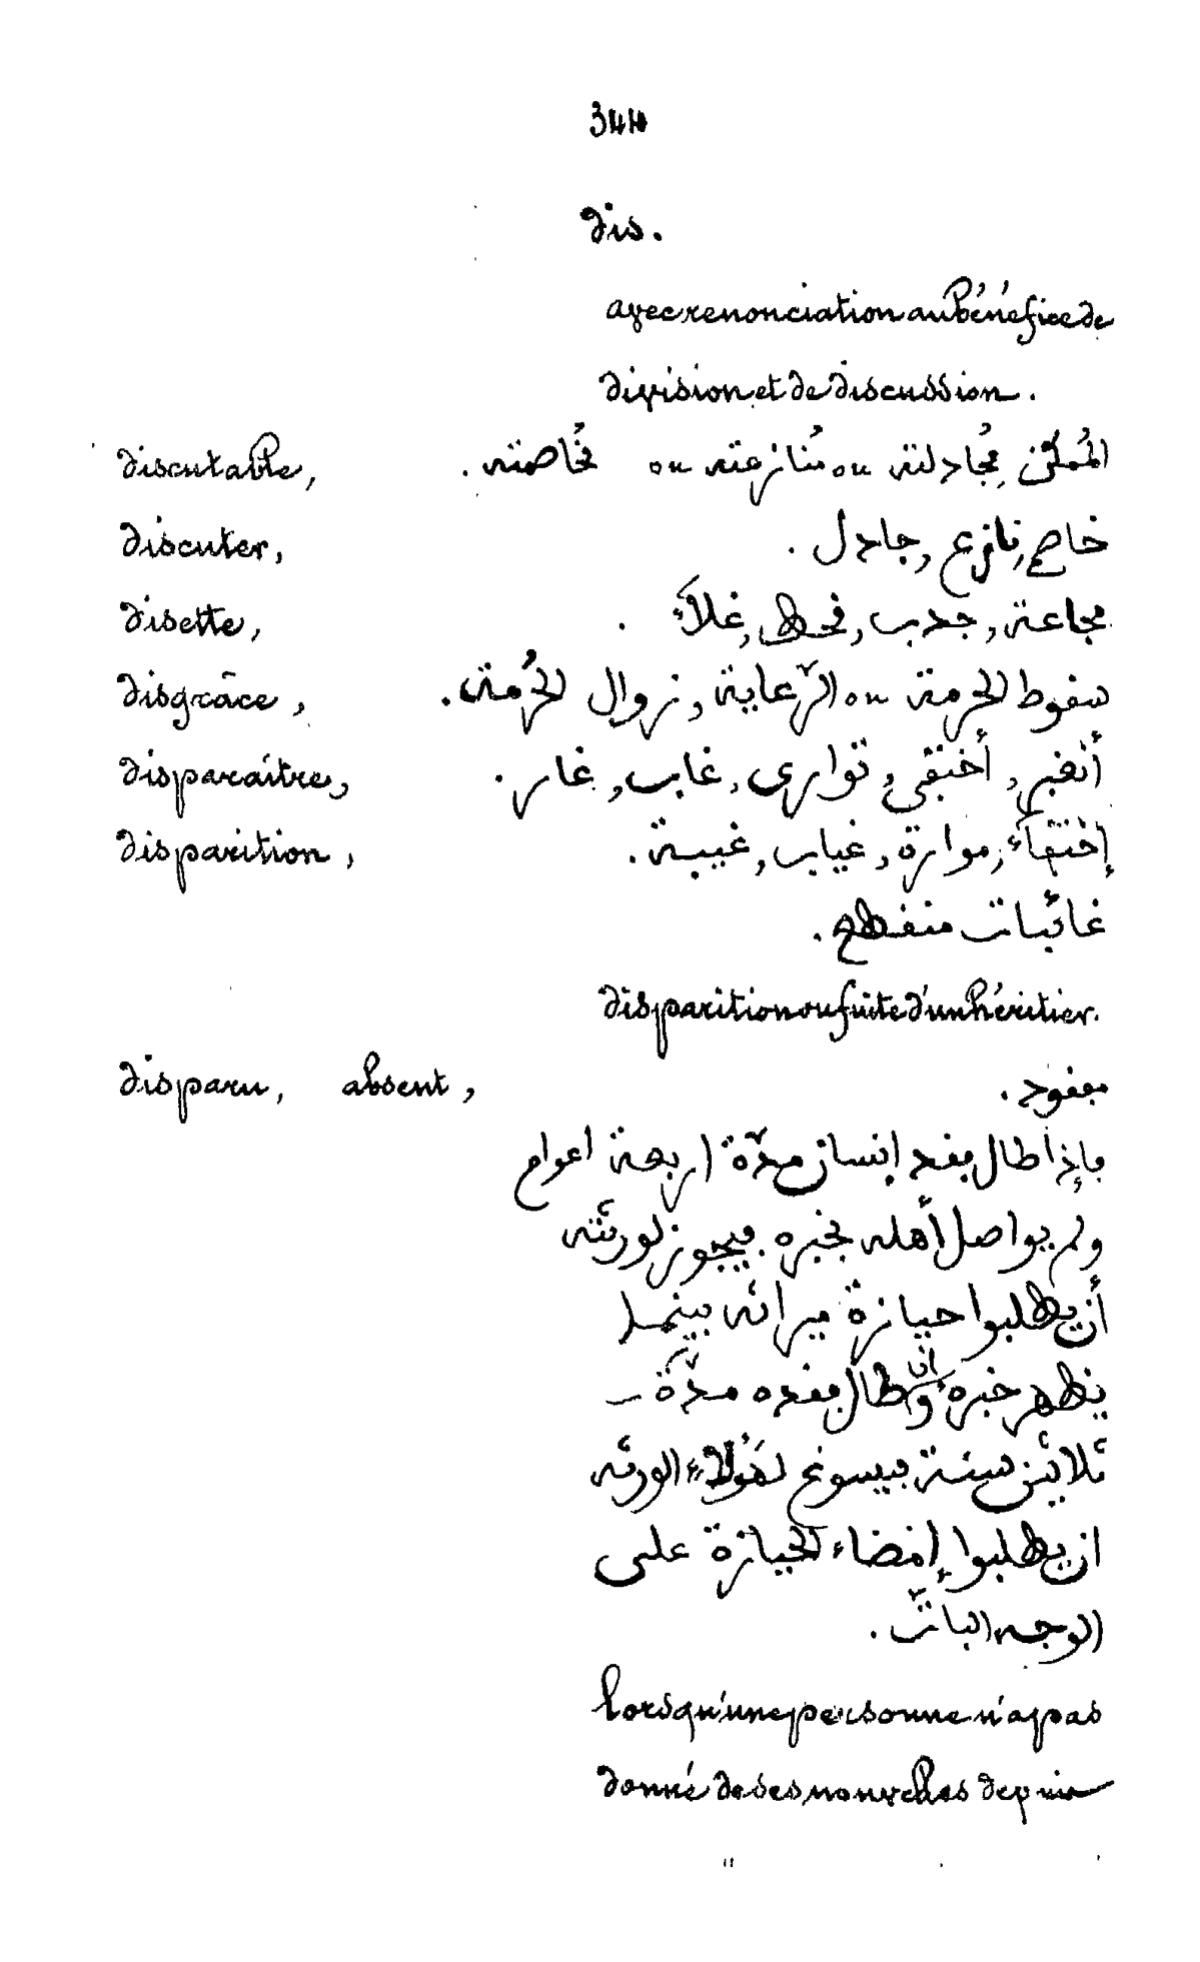 344
dis.
avec renonciation au bénéfice de
division et de discussion.
discutable, المُمكن مُجادلته ou مُنازعته ou مُخاصمته.
discuter, خاصم, نازع, جادل.
disette, مجاعة, جدب, فحط, غلآء.
disgrâce, سفوط الحرمة ou الرّعاية, زوال الحُرمة.
disparaître, أختفى, توارى, غاب, غار.
disparition, إختفآء, موارة, غياب, غيبة.
غائبات منفطع.
disparition ou fuite d'un héritier.
disparu, absent, مفقود.
فإذا طال فقد إنسان مدّة اربعة اعوام
ولم يواصل أهله بخبره فيجوز لورثته
أن يطلبوا حيازة ميراثه بينما
يظهر خبره وان طال فقده مدّة
ثلاثين سنة فيسوغ لهؤلاء الورثه
ان يطلبوا إمضاء الحيازة على
الوجه الباتّ.
lorsqu'une personne n'a pas
donné de ses nouvelles depuis